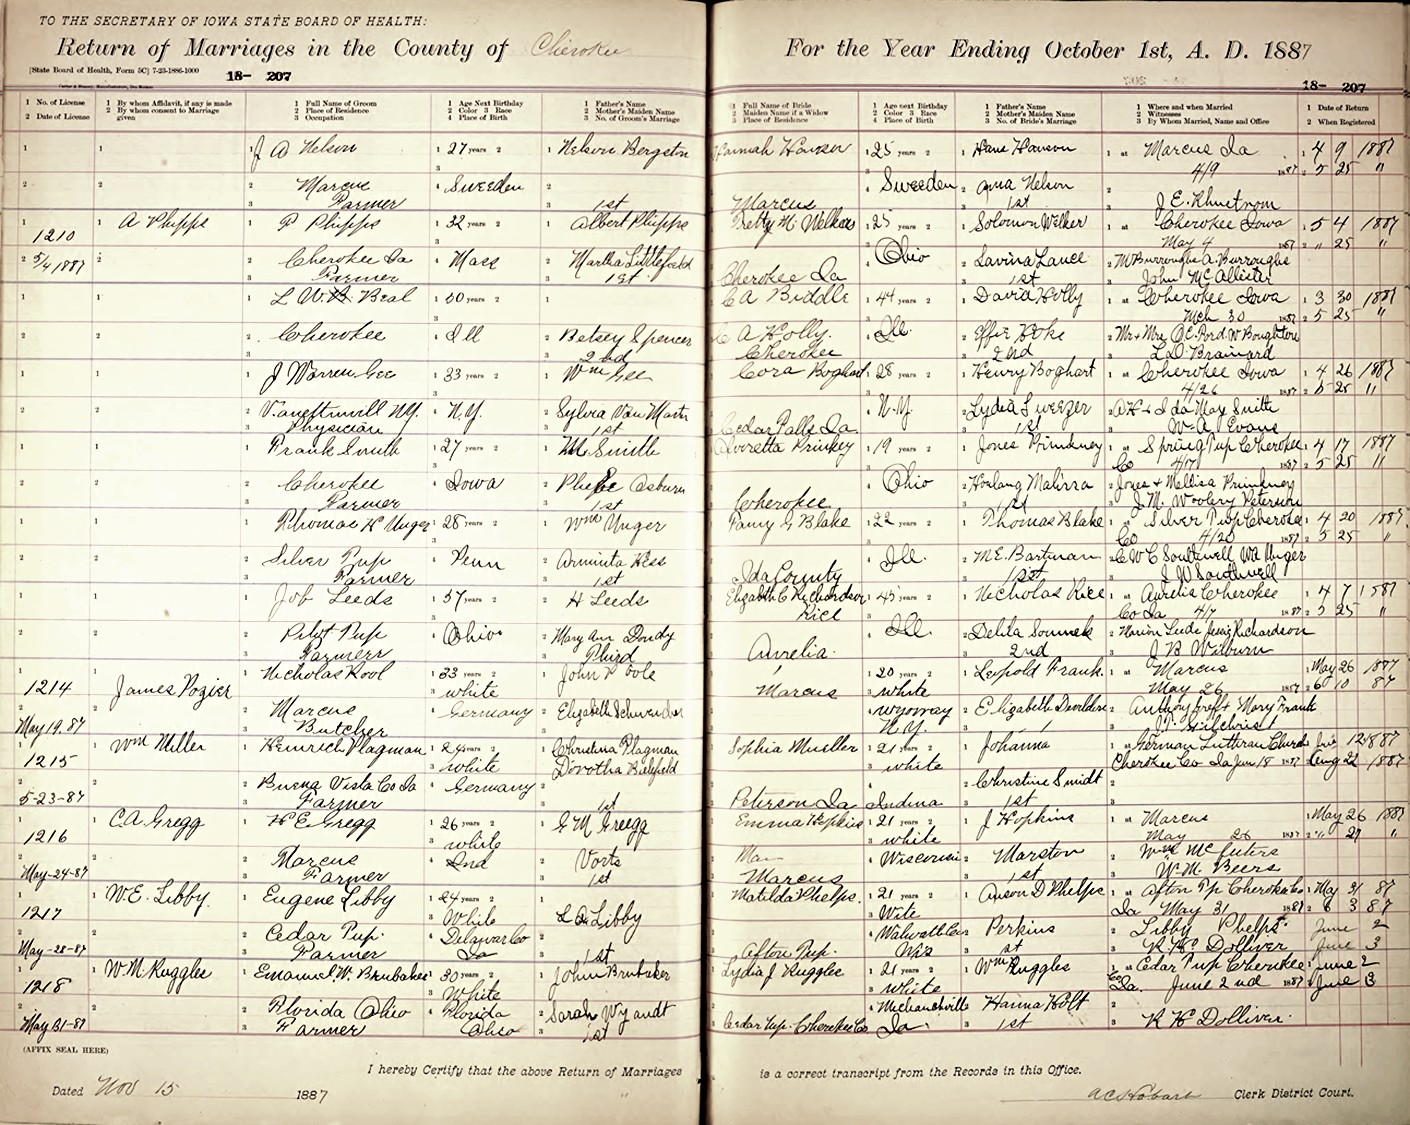 TO THE SECRETARY OF IOWA STATE BOARD OF HEALTH:
Return of Marriages in the County of Cherokee
For the Year Ending October 1st, A. D. 1887
[State Board of Health, Form 5C] 7-23-1886-1000
18- 207
18- 207
1 No. of License
2 Date of License
1 By whom Affidavit, if any is made
2 By whom consent to Marriage given
1 Full Name of Groom
2 Place of Residence
3 Occupation
1 Age Next Birthday
2 Color 3 Race
4 Place of Birth
1 Father's Name
2 Mother's Maiden Name
3 No. of Groom's Marriage
1 Full Name of Bride
2 Maiden Name if a Widow
3 Place of Residence
1 Age next Birthday
2 Color 3 Race
4 Place of Birth
1 Father's Name
2 Mother's Maiden Name
3 No. of Bride's Marriage
1 Where and when Married
2 Witnesses
3 By Whom Married, Name and Office
1 Date of Return
2 When Registered
J A Nelson 27 years Nelson Bergston
Marcus Sweeden
Farmer 1st
Hannah Hanson 25 years Hans Hanson at Marcus Ia 4 9 1887
4/9 1887 5 25 "
Sweeden Nelson
Marcus 1st
1210 A Phipps P Phipps 32 years Albert Phipps
5/4 1887 Cherokee Ia Mass Martha Littlefield
Farmer 1st
Betty M. Welker 25 years Solomon Welker at Cherokee Iowa 5 4 1887
May 4 1887 " 25 "
Ohio Lavina Lance M Burroughs A. Burroughs
Cherokee Ia 1st John McAllister
L W. Beal 50 years
Cherokee Ill Betsey Spencer
2nd
C A Biddle 44 years David Holly at Cherokee Iowa 3 30 1887
Mch 30 1887 5 25 "
C A Holly. Ill. Effie Hoke
Cherokee 2nd L D. Brainard
J Warren Gee 33 years Wm Gee
N.Y. N.Y. Sylvia Van
Physician 1st
Cora Boghart 28 years Henry Boghart at Cherokee Iowa 4 26 1887
4/26 1887 5 25 "
N.Y. Lydia Sweezer Ida May Smith
Cedar Falls Ia. 1st W. A. Evans
Frank Smith 27 years M. Smith
Cherokee Iowa Phebe Osburn
Farmer 1st
Prinkey 19 years Jones Prinkney at Spring Tup Cherokee 4 17 1887
Co 4/17 1887 5 25 "
Ohio Malissa Jones & Mellisa Prinkney
Cherokee 1st J. M. Woolery Peterson
Thomas H Unger 28 years Wm Unger
Silver Tup Penn Arminta Hess
Farmer 1st
Fanny G Blake 22 years Thomas Blake at Silver Tup Cherokee 4 20 1887
Co 4/20 1887 5 25 "
Ill. M.E. Bartman C W C Southwell WA Unger
Ida County 1st J W Southwell
Job Leeds 57 years H Leeds
Pilot Tup Ohio Mary Ann Doudy
Farmer Third
Elizabeth C Richardson 45 years Nicholas Rice at Aurelia Cherokee 4 7 1887
Rice Co Ia 4/7 1887 5 25 "
Ill. Delila Marion Leeds Jessie Richardson
Aurelia 2nd J B Wilburn
1214 James Pozier Nicholas Kool 33 years John P
white
May 19. 87 Marcus Germany Elizabeth
Butcher
Marcus 20 years Leopold Frank at Marcus May 26 1887
white May 26 1887 6 10 87
Wyoming Elizabeth Anthony & Mary Frank
N.Y. J.T. Gilchrist
1215 Wm Miller Heinrich Plagman 24 years Christina Plagman
white Dorotha Bielefeld
5-23-87 Buena Vista Co Ia Germany
Farmer 1st
Sophia Mueller 21 years Johanna at German Lutheran Church
white Cherokee Co Ia Jun 18 1887 Aug 22 1887
Christine Smidt
Peterson Ia Indina 1st
1216 C.A. Gregg H E Gregg 26 years G M Greegg
white
May-24-87 Marcus Ind Vorts
Farmer 1st
Emma Hopkins 21 years J Hopkins at Marcus May 26 1887
white May 26 1887 " 27 "
Wisconsin Marston
Marcus 1st W. M. Beers
1217 W.E. Libby. Eugene Libby 24 years Libby
White
May-28-87 Cedar Tup. Delawar Co
Farmer Ia 1st
Matilda Phelps. 21 years Anson D Phelps at Afton Tp Cherokee Co May 31 87
Wite Ia May 31 1887 6 3 87
Perkins Libby Phelps June 2
Afton Tup. Wis st R. H. Dolliver June 3
1218 W.M. Ruggles Emanuel W. Brubaker 30 years John Brubaker
White
May 31-87 Florida Ohio Florida Sarah Wyandt
Farmer Ohio 1st
Lydia J Ruggles 21 years Wm Ruggles at Cedar Tup Cherokee June 2
white Co Ia. June 2nd 1887 June 3
Mechancville Hanna Holt
Cedar Tup. Cherokee Co Ia. 1st R H Dolliver.
(AFFIX SEAL HERE)
I hereby Certify that the above Return of Marriages is a correct transcript from the Records in this Office.
Dated Nov 15 1887
A C Hobart Clerk District Court.